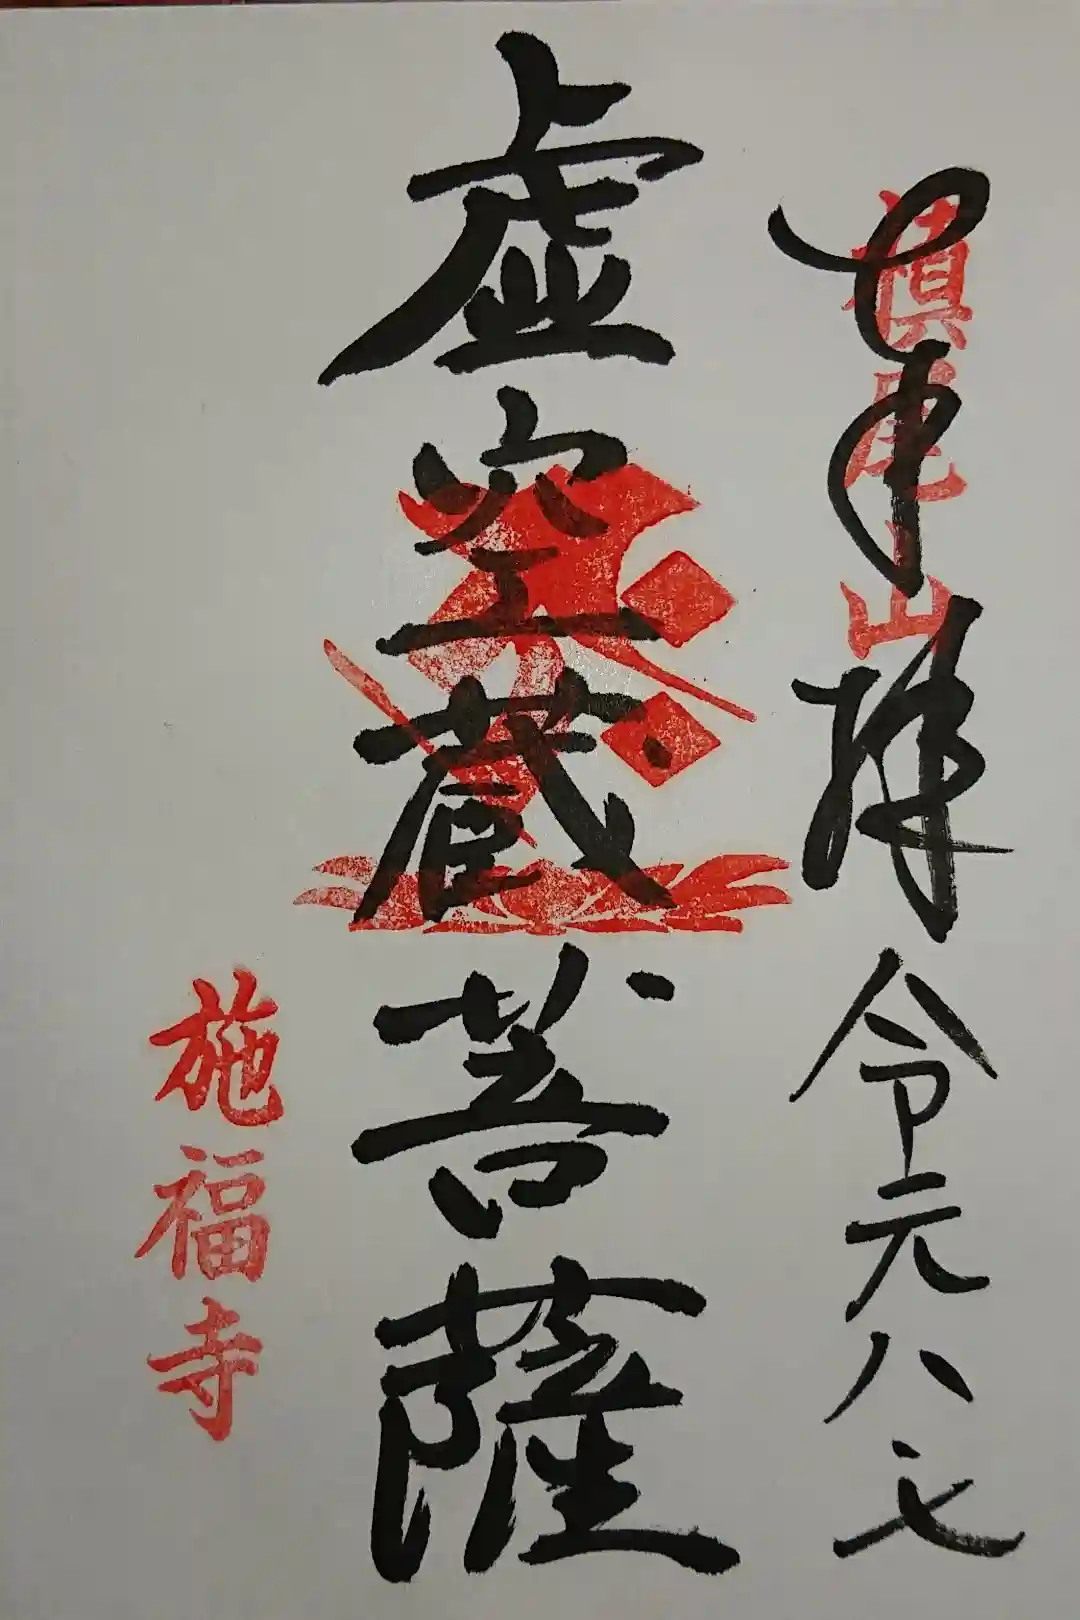 奉拝 令元 八 七
槇尾山
虚空蔵菩薩
施福寺